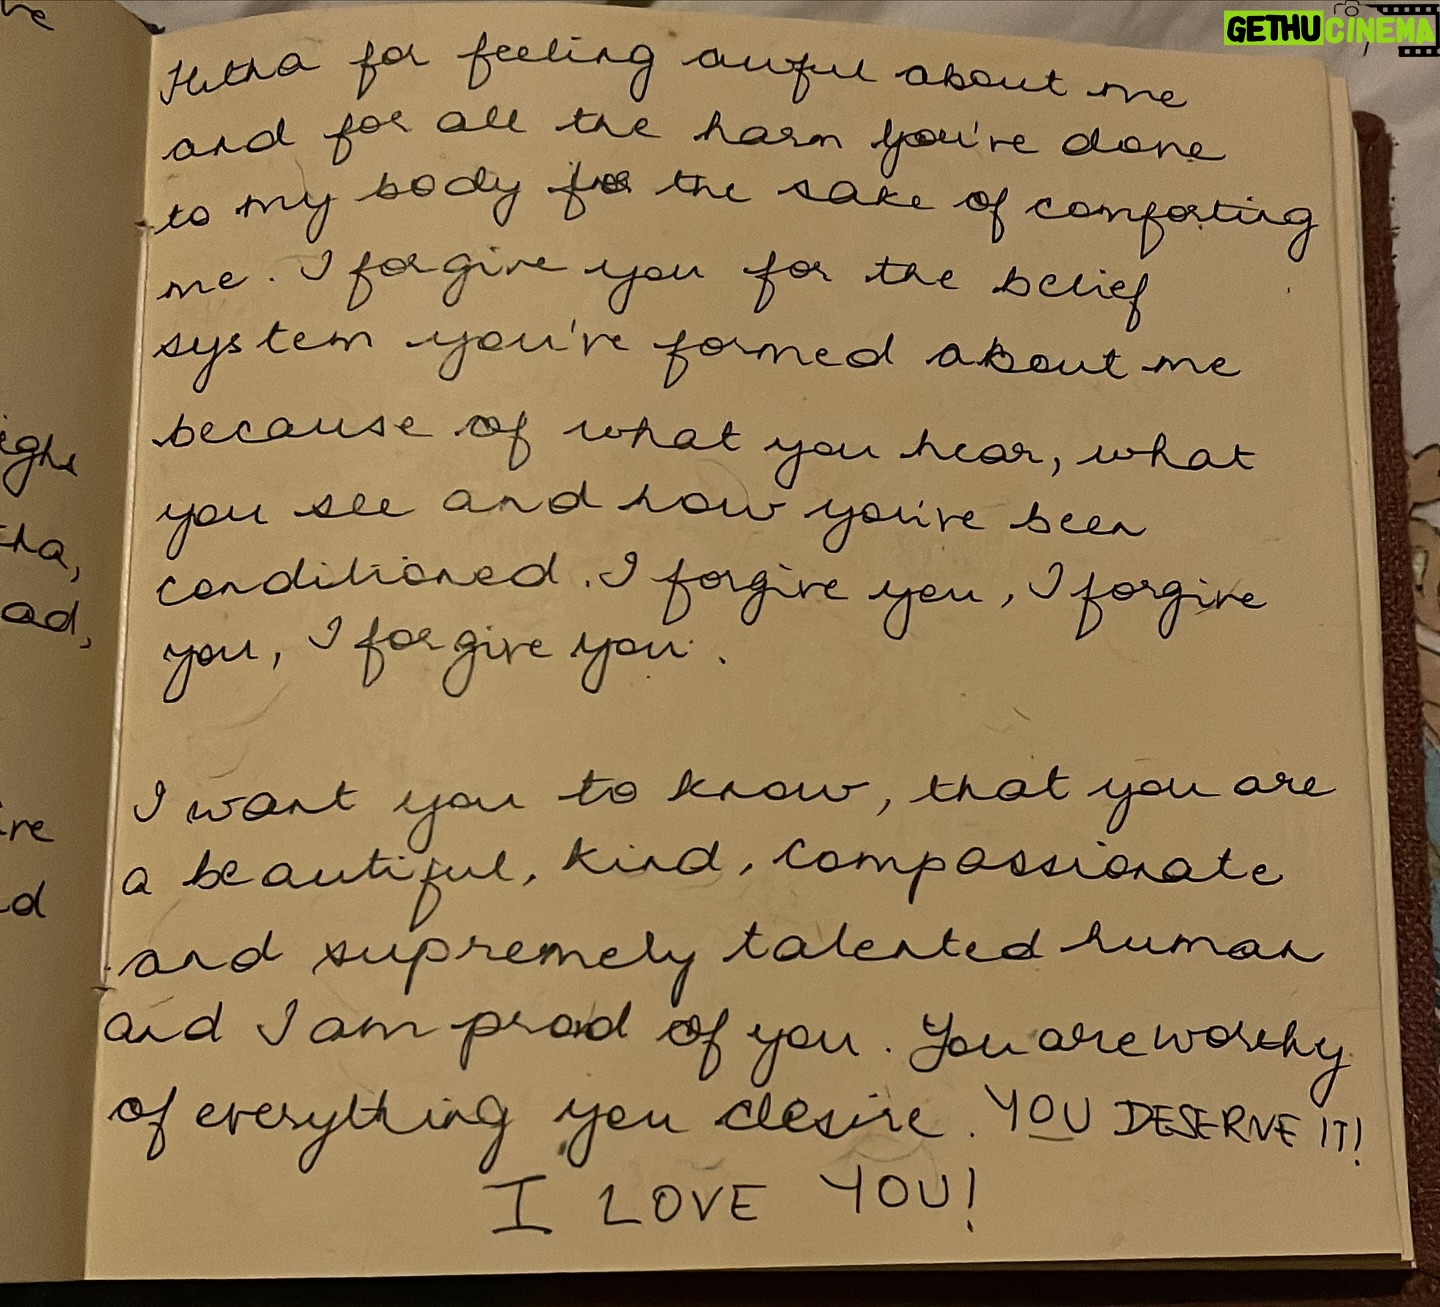 GETHUCINEMA
Hitha for feeling awful about me
and for all the harm you've done
to my body for the sake of comforting
me. I forgive you for the belief
system you've formed about me
because of what you hear, what
you see and how you've been
conditioned. I forgive you, I forgive
you, I forgive you.
I want you to know, that you are
a beautiful, kind, compassionate
and supremely talented human
and I am proud of you. You are worthy
of everything you desire. YOU DESERVE IT!
I LOVE YOU!
ad,